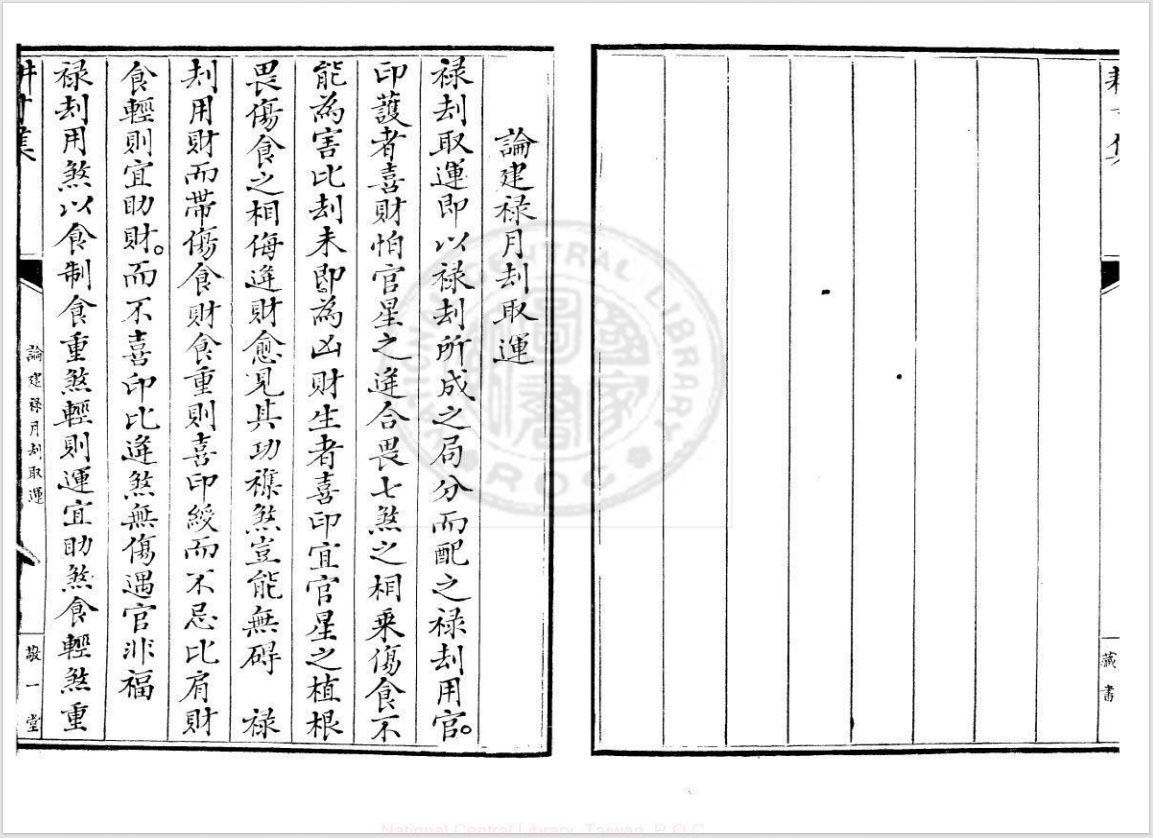 論建祿月刦取運
祿刦取運即以祿刦所成之局分而配之祿刦用官。
印護者喜財怕官星之逢合畏七煞之相乗傷食不
能為害比刦未即為凶財生者喜印宜官星之植根
畏傷食之相侮逢財愈見其功襍煞豈能無碍　祿
刦用財而帶傷食財食重則喜印綬而不忌比肩財
食輕則宜助財。而不喜印比逢煞無傷遇官非福
祿刦用煞以食制食重煞輕則運宜助煞食輕煞重
論建祿月刦取運
敬一堂
藏書
NATIONAL CENTRAL LIBRARY
ROC
國家圖書
National Central Library, Taiwan, R.O.C